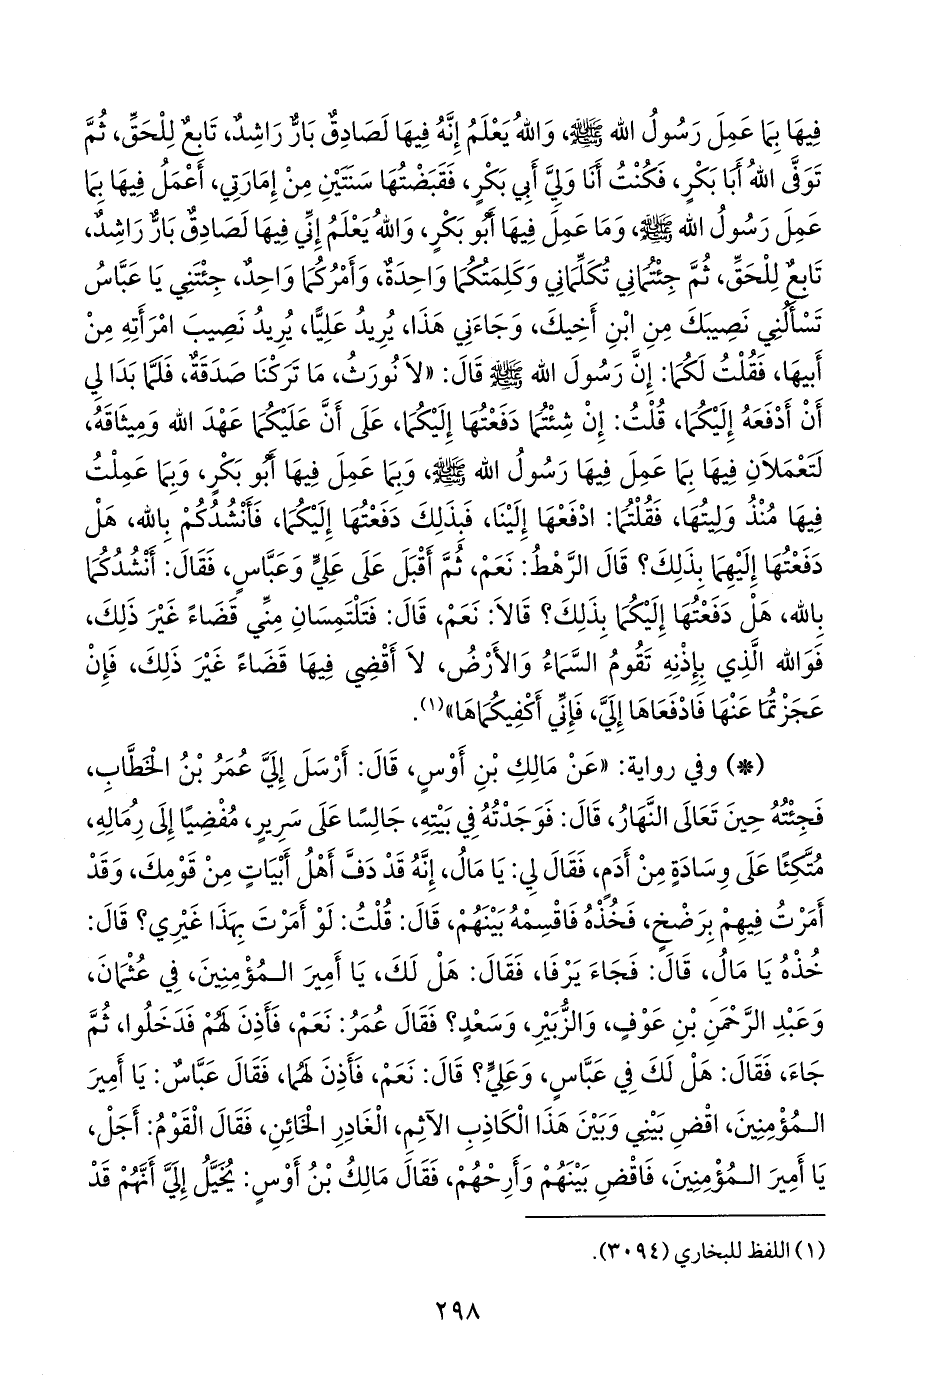 فِيهَا بِمَا عَمِلَ رَسُولُ الله ﷺ، وَاللهُ يَعْلَمُ إِنَّهُ فِيهَا لَصَادِقٌ بَارٌّ رَاشِدٌ، تَابِعٌ لِلْحَقِّ، ثُمَّ
تَوَفَّى اللهُ أَبَا بَكْرٍ، فَكُنْتُ أَنَا وَلِيَّ أَبِي بَكْرٍ، فَقَبَضْتُهَا سَنَتَيْنِ مِنْ إِمَارَتِي، أَعْمَلُ فِيهَا بِمَا
عَمِلَ رَسُولُ الله ﷺ، وَمَا عَمِلَ فِيهَا أَبُو بَكْرٍ، وَاللهُ يَعْلَمُ إِنِّي فِيهَا لَصَادِقٌ بَارٌّ رَاشِدٌ،
تَابِعٌ لِلْحَقِّ، ثُمَّ جِئْتُمَانِي تُكَلِّمَانِي وَكَلِمَتُكُمَا وَاحِدَةٌ، وَأَمْرُكُمَا وَاحِدٌ، جِئْتَنِي يَا عَبَّاسُ
تَسْأَلُنِي نَصِيبَكَ مِنِ ابْنِ أَخِيكَ، وَجَاءَنِي هَذَا، يُرِيدُ عَلِيًّا، يُرِيدُ نَصِيبَ امْرَأَتِهِ مِنْ
أَبِيهَا، فَقُلْتُ لَكُمَا: إِنَّ رَسُولَ الله ﷺ قَالَ: «لاَ نُورَثُ، مَا تَرَكْنَا صَدَقَةٌ، فَلَمَّا بَدَا لِي
أَنْ أَدْفَعَهُ إِلَيْكُمَا، قُلْتُ: إِنْ شِئْتُمَا دَفَعْتُهَا إِلَيْكُمَا، عَلَى أَنَّ عَلَيْكُمَا عَهْدَ الله وَمِيثَاقَهُ،
لَتَعْمَلاَنِ فِيهَا بِمَا عَمِلَ فِيهَا رَسُولُ الله ﷺ، وَبِمَا عَمِلَ فِيهَا أَبُو بَكْرٍ، وَبِمَا عَمِلْتُ
فِيهَا مُنْذُ وَلِيتُهَا، فَقُلْتُمَا: ادْفَعْهَا إِلَيْنَا، فَبِذَلِكَ دَفَعْتُهَا إِلَيْكُمَا، فَأَنْشُدُكُمْ بِالله، هَلْ
دَفَعْتُهَا إِلَيْهِمَا بِذَلِكَ؟ قَالَ الرَّهْطُ: نَعَمْ، ثُمَّ أَقْبَلَ عَلَى عَلِيٍّ وَعَبَّاسٍ، فَقَالَ: أَنْشُدُكُمَا
بِالله، هَلْ دَفَعْتُهَا إِلَيْكُمَا بِذَلِكَ؟ قَالاَ: نَعَمْ، قَالَ: فَتَلْتَمِسَانِ مِنِّي قَضَاءً غَيْرَ ذَلِكَ،
فَوَالله الَّذِي بِإِذْنِهِ تَقُومُ السَّمَاءُ وَالأَرْضُ، لاَ أَقْضِي فِيهَا قَضَاءً غَيْرَ ذَلِكَ، فَإِنْ
عَجَزْتُمَا عَنْهَا فَادْفَعَاهَا إِلَيَّ، فَإِنِّي أَكْفِيكُمَاهَا»(١).
(*) وفي رواية: «عَنْ مَالِكِ بْنِ أَوْسٍ، قَالَ: أَرْسَلَ إِلَيَّ عُمَرُ بْنُ الخَطَّابِ،
فَجِئْتُهُ حِينَ تَعَالَى النَّهَارُ، قَالَ: فَوَجَدْتُهُ فِي بَيْتِهِ، جَالِسًا عَلَى سَرِيرٍ، مُفْضِيًا إِلَى رُمَالِهِ،
مُتَّكِئًا عَلَى وِسَادَةٍ مِنْ أَدَمٍ، فَقَالَ لِي: يَا مَالُ، إِنَّهُ قَدْ دَفَّ أَهْلُ أَبْيَاتٍ مِنْ قَوْمِكَ، وَقَدْ
أَمَرْتُ فِيهِمْ بِرَضْخٍ، فَخُذْهُ فَاقْسِمْهُ بَيْنَهُمْ، قَالَ: قُلْتُ: لَوْ أَمَرْتَ بِهَذَا غَيْرِي؟ قَالَ:
خُذْهُ يَا مَالُ، قَالَ: فَجَاءَ يَرْفَا، فَقَالَ: هَلْ لَكَ، يَا أَمِيرَ الـمُؤْمِنِينَ، فِي عُثْمَانَ،
وَعَبْدِ الرَّحْمَنِ بْنِ عَوْفٍ، وَالزُّبَيْرِ، وَسَعْدٍ؟ فَقَالَ عُمَرُ: نَعَمْ، فَأَذِنَ لَهُمْ فَدَخَلُوا، ثُمَّ
جَاءَ، فَقَالَ: هَلْ لَكَ فِي عَبَّاسٍ، وَعَلِيٍّ؟ قَالَ: نَعَمْ، فَأَذِنَ لَهُمَا، فَقَالَ عَبَّاسٌ: يَا أَمِيرَ
الـمُؤْمِنِينَ، اقْضِ بَيْنِي وَبَيْنَ هَذَا الْكَاذِبِ الآثِمِ، الْغَادِرِ الخَائِنِ، فَقَالَ الْقَوْمُ: أَجَلْ،
يَا أَمِيرَ الـمُؤْمِنِينَ، فَاقْضِ بَيْنَهُمْ وَأَرِحْهُمْ، فَقَالَ مَالِكُ بْنُ أَوْسٍ: يُخَيَّلُ إِلَيَّ أَنَّهُمْ قَدْ
(١) اللفظ للبخاري (٣٠٩٤).
٢٩٨